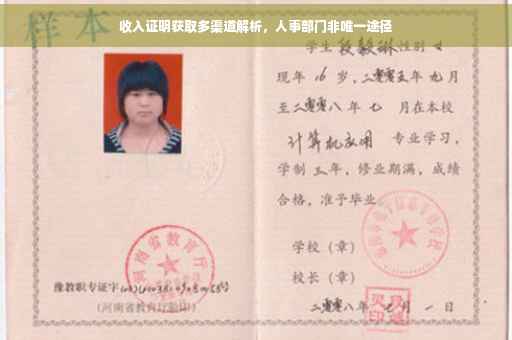 收入证明获取多渠道解析，人事部门非唯一途径
样本
学生段毅琳性别女
现年16岁，二零零五年九月
至二零零八年七月在本校
计算机应用 专业学习，
学制三年，修业期满，成绩
合格，准予毕业
学校（章）
校长（章）
二零零八年七月一日
河南省教育厅
豫教职专证字
（河南省教育厅验印）